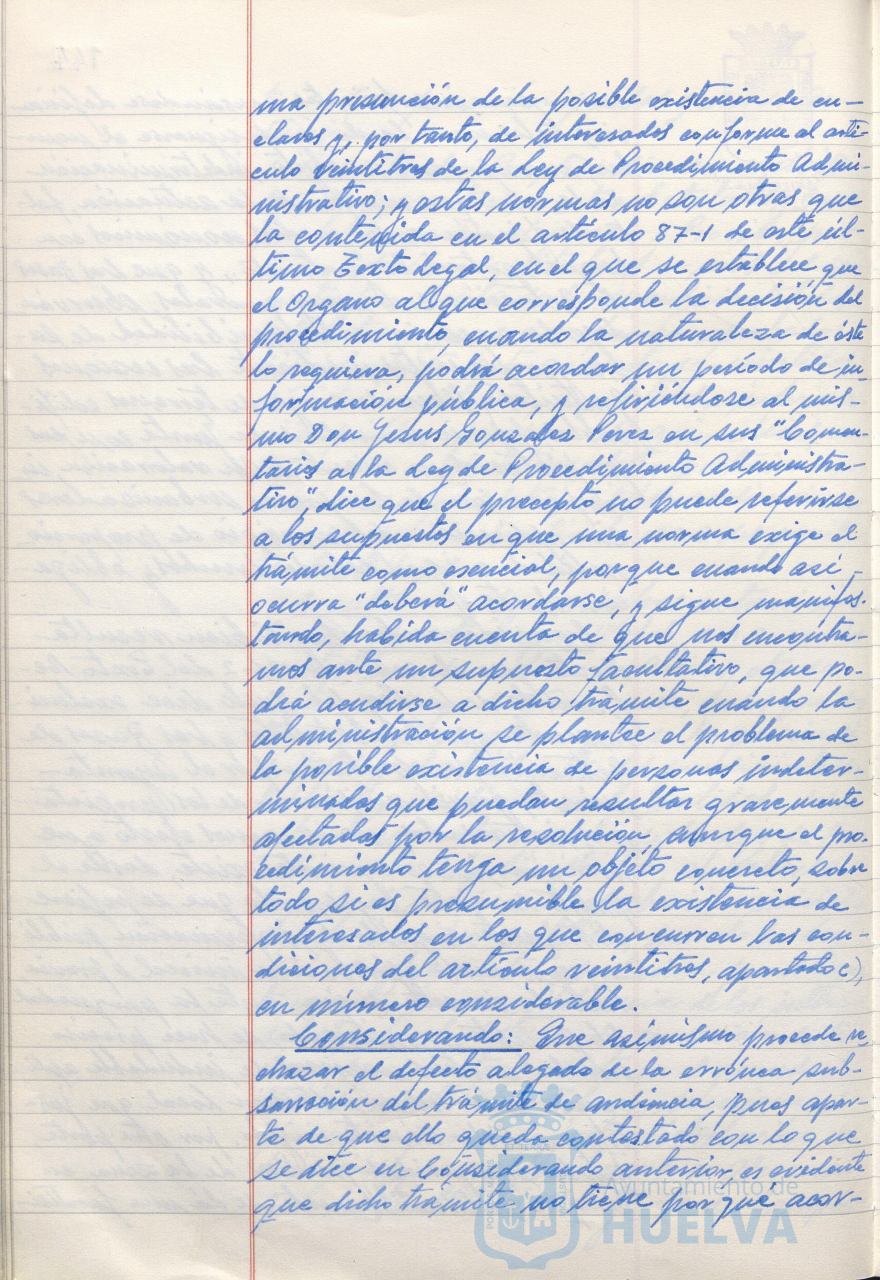 ma presunción de la posible existencia de en-
claves y, por tanto, de interesados conforme al artí-
culo veintitres de la Ley de Procedimiento Admi-
nistrativo; y estas normas no son otras que
la contenida en el artículo 87-1 de este úl-
timo Texto Legal, en el que se establece que
el Organo al que corresponde la decisión del
procedimiento, cuando la naturaleza de éste
lo requiera, podrá acordar un período de in-
formación pública, y refiriéndose al mis-
mo Don Jesus González Perez en sus "Comen-
tarios a la Ley de Procedimiento Administra-
tivo", dice que el precepto no puede referirse
a los supuestos en que una norma exige el
trámite como esencial, porque cuando así
ocurra "deberá" acordarse, y sigue manifes-
tando, habida cuenta de que nos encontra-
mos ante un supuesto facultativo, que po-
drá acudirse a dicho trámite cuando la
administración se plantee el problema de
la posible existencia de personas indeter-
minadas que puedan resultar gravemente
afectadas por la resolución, aunque el pro-
cedimiento tenga un objeto concreto, sobre
todo si es presumible la existencia de
interesados en los que concurren las con-
diciones del artículo veintitres, apartado c),
en número considerable.
Considerando: Que asimismo procede re-
chazar el defecto alegado de la errónea sub-
sanación del trámite de audiencia, pues apar-
te de que ello queda contestado con lo que
se dice en Considerando anterior, es evidente
que dicho trámite no tiene por qué acor-
Ayuntamiento de
HUELVA